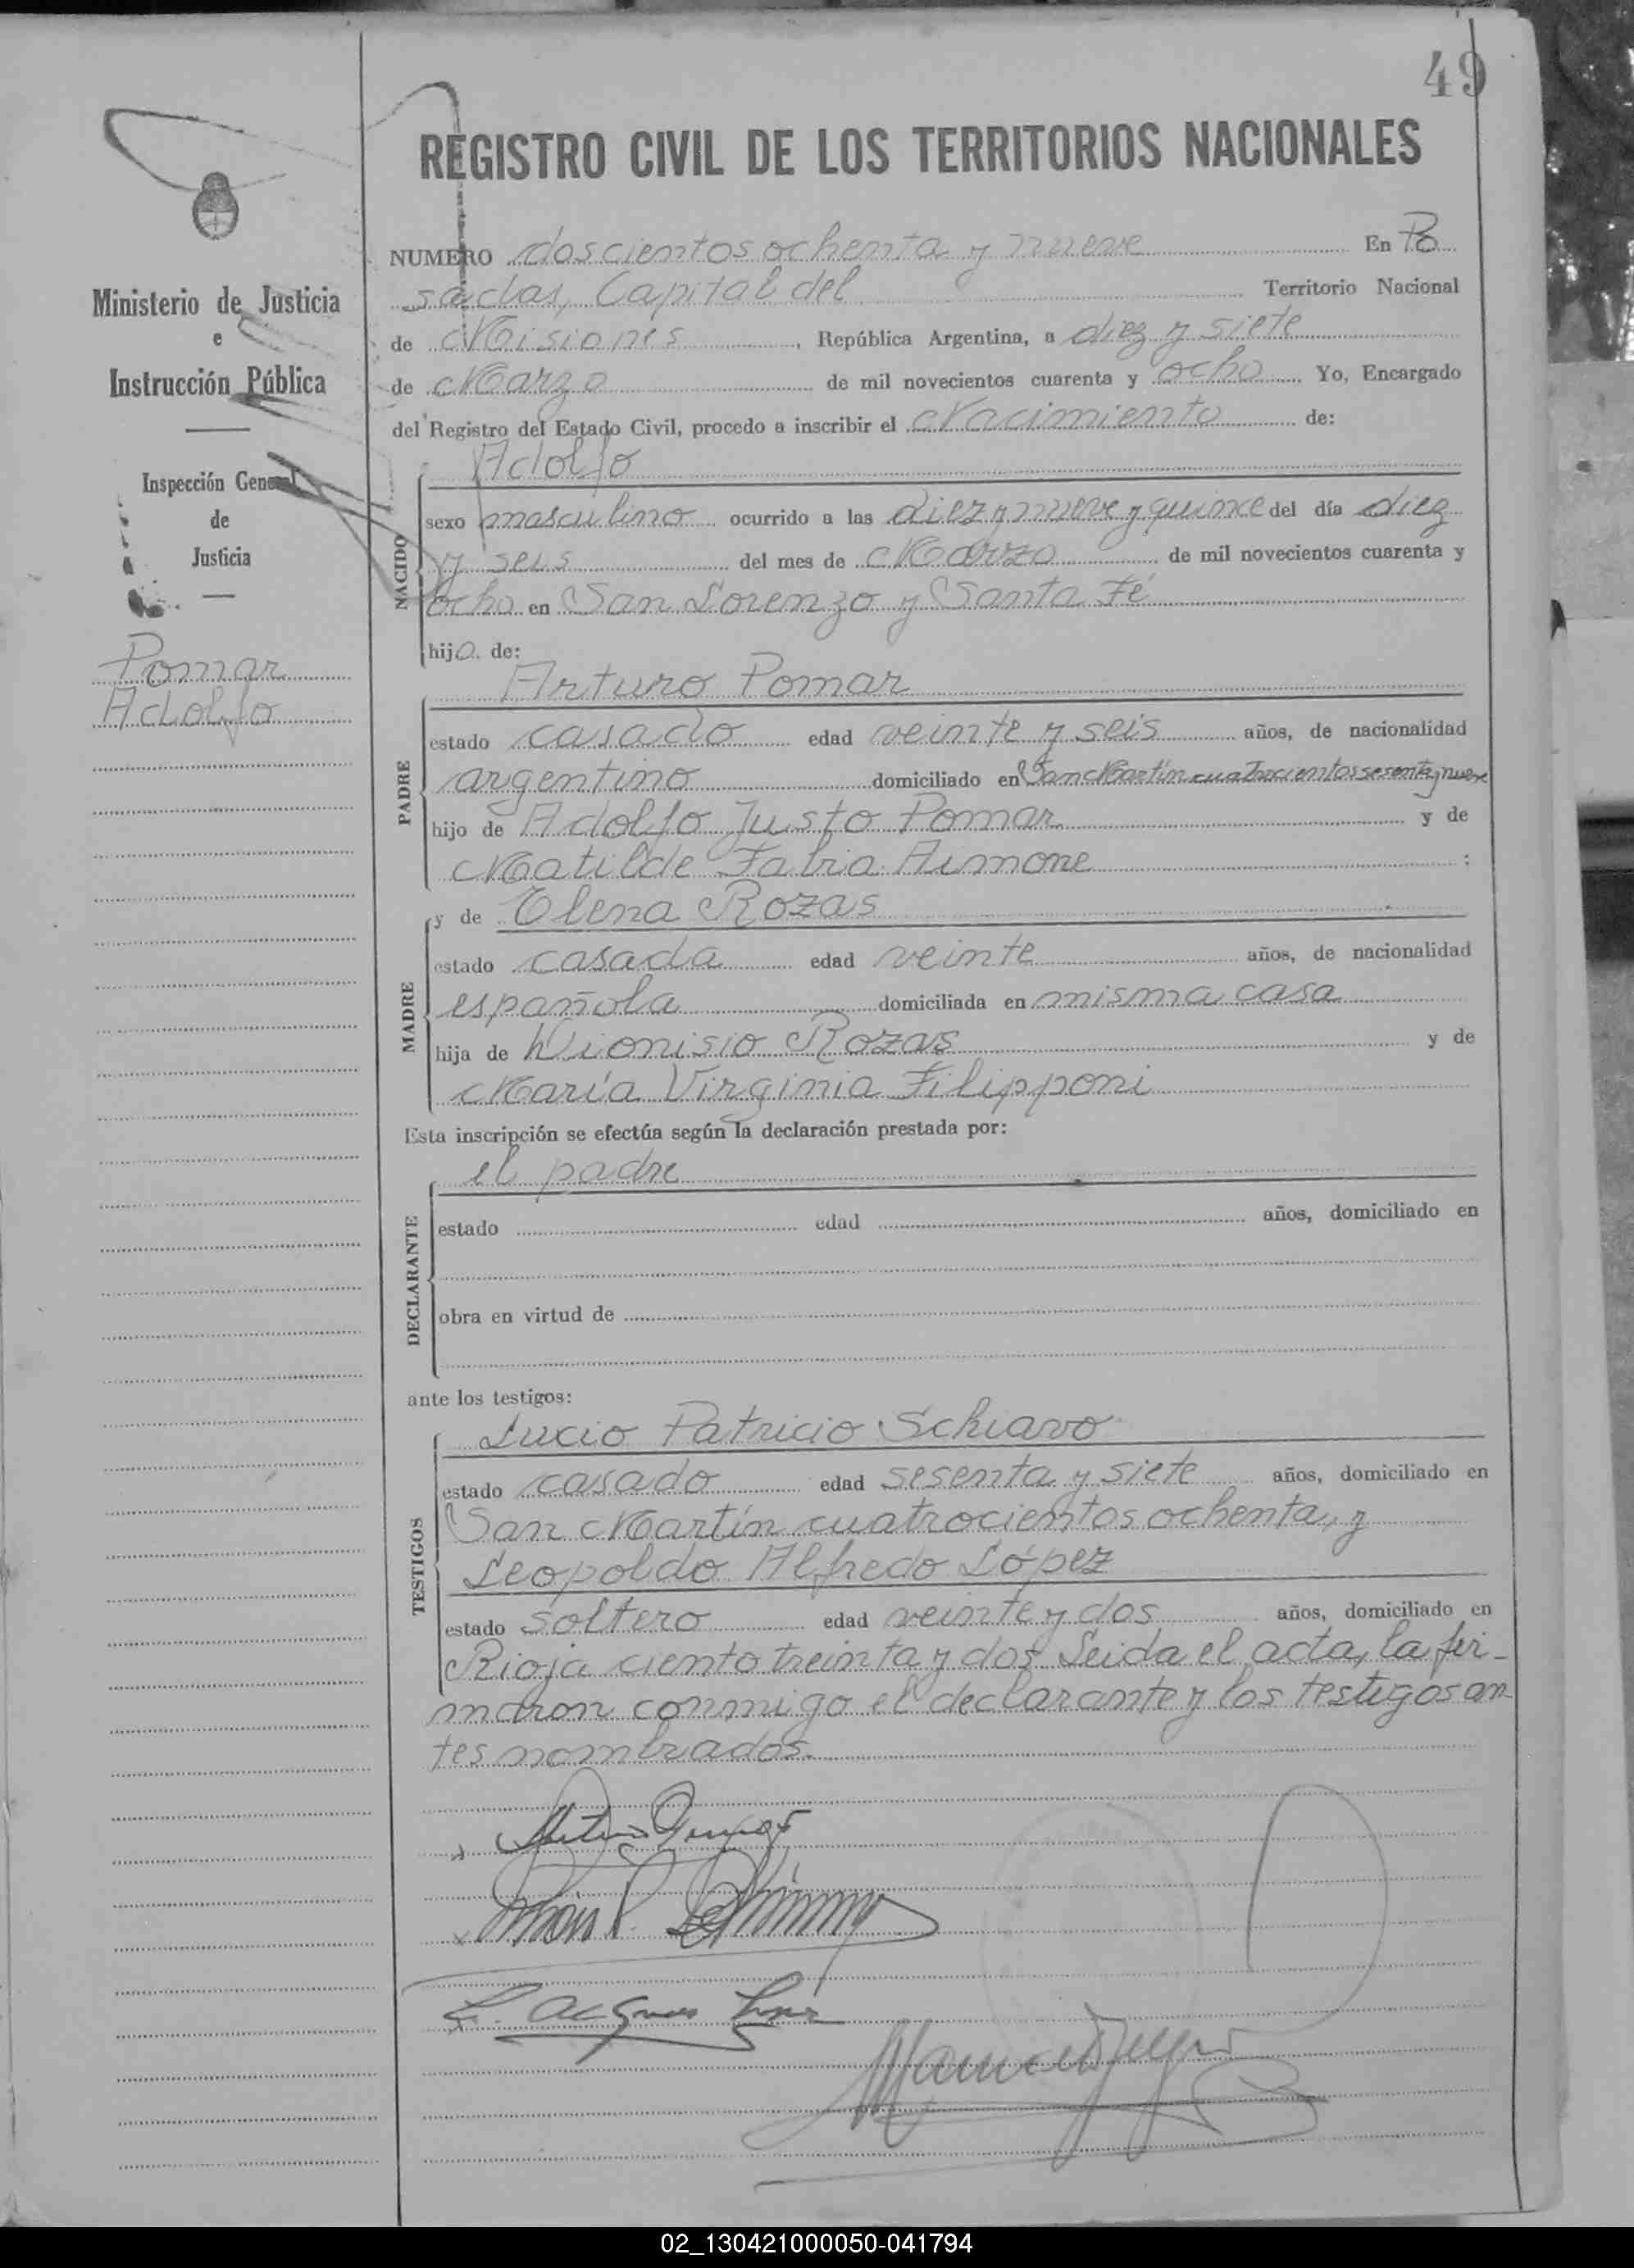 49
REGISTRO CIVIL DE LOS TERRITORIOS NACIONALES
NUMERO doscientos ochenta y nueve En Po
sadas, Capital del Territorio Nacional
de Misiones, República Argentina, a diez y siete
de Marzo de mil novecientos cuarenta y ocho Yo, Encargado
del Registro del Estado Civil, procedo a inscribir el Nacimiento de:
Adolfo
NACIDO
sexo masculino ocurrido a las diez y nueve y quince del día diez
y seis del mes de Marzo de mil novecientos cuarenta y
ocho en San Lorenzo y Santa Fé
hijo de:
Arturo Pomar
PADRE
estado casado edad veinte y seis años, de nacionalidad
argentino domiciliado en San Martín cuatrocientos sesenta y nueve
hijo de Adolfo Justo Pomar y de
Matilde Fabia Aimone :
y de Elena Rozas
MADRE
estado casada edad veinte años, de nacionalidad
española domiciliada en misma casa
hija de Dionisio Rozas y de
María Virginia Filipponi
Esta inscripción se efectúa según la declaración prestada por:
el padre
DECLARANTE
estado edad años, domiciliado en
obra en virtud de
ante los testigos:
Lucio Patricio Schiavo
TESTIGOS
estado casado edad sesenta y siete años, domiciliado en
San Martín cuatrocientos ochenta, y
Leopoldo Alfredo López
estado soltero edad veinte y dos años, domiciliado en
Rioja ciento treinta y dos Leida el acta, la fir-
maron conmigo el declarante y los testigos an
tes nombrados.
Ministerio de Justicia
e
Instrucción Pública
Inspección General
de
Justicia
Pomar
Adolfo
02_130421000050-041794